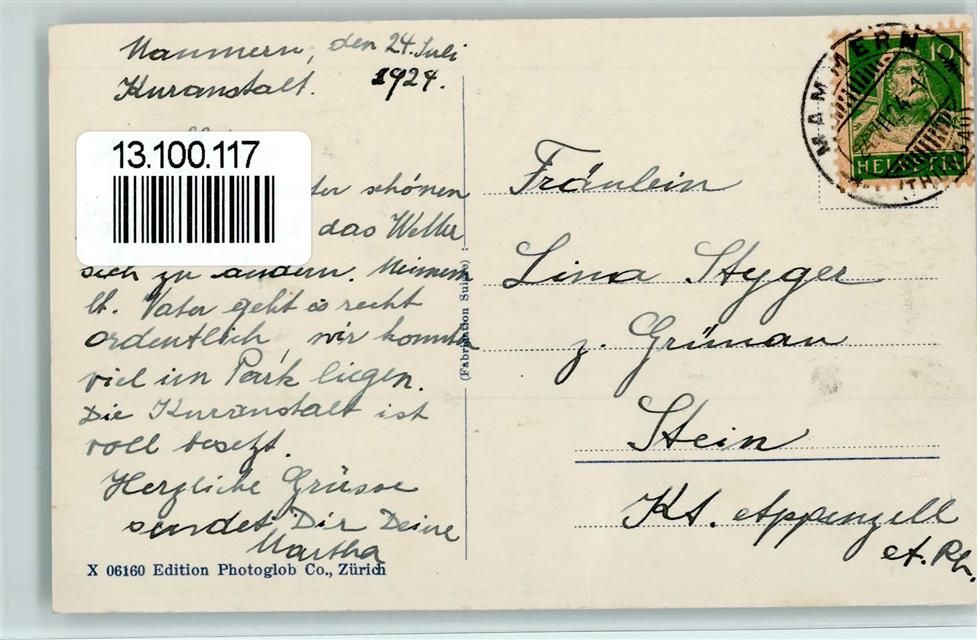 Mammern, den 24. Juli
Kuranstalt. 1924.
13.100.117
der schönen
das Wetter
sich zu ändern. Meinem
lb. Vater geht es recht
ordentlich wir konnten
viel im Park liegen.
Die Kuranstalt ist
voll besetzt.
Herzliche Grüsse
sendet Dir Deine
Martha
X 06160 Edition Photoglob Co., Zürich
(Fabrication Suisse)
MAMMERN
10
HELVETIA
Fräulein
Lina Styger
z. Grünau
Stein
Kt. Appenzell
A. Rh.